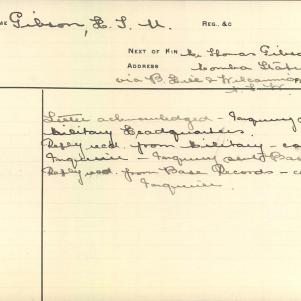 ME Gibson, L. T. M. REG. &C
NEXT OF KIN Mr Thomas Gibso
ADDRESS Comba Stati
via B. Hill & Wilcannia
N. S. W.
Letter acknowledged - Inquiry
Military Headquarters.
Reply recd. from Military - co
Inquirer - Inquiry sent Bas
Reply recd. from Base Records - c
Inquirer.